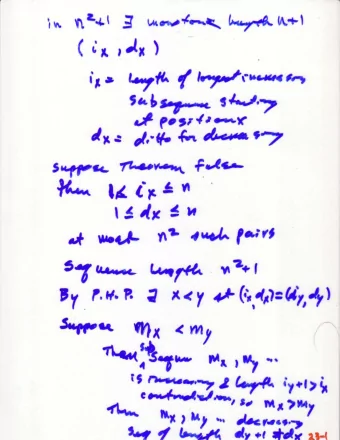 in n²+1 ∃ monotone length n+1
(ix, dx)
ix = length of longest increasing
subsequence starting
at position x
dx = ditto for decreasing
Suppose Theorem false
then 1≤ ix ≤ n
1 ≤ dx ≤ n
at most n² such pairs
Sequence length n²+1
By P.H.P. ∃ x<y st (ix,dx)=(iy,dy)
Suppose mx < my
Then sub Sequence mx, my ...
is increasing & length iy+1>ix
contradiction, so mx>my
Then mx, my ... decreasing
seq of length dy+1>dx 23-1